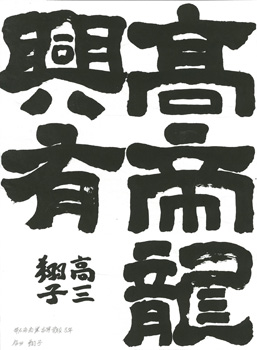 高帝龍
興有
高三
翔子